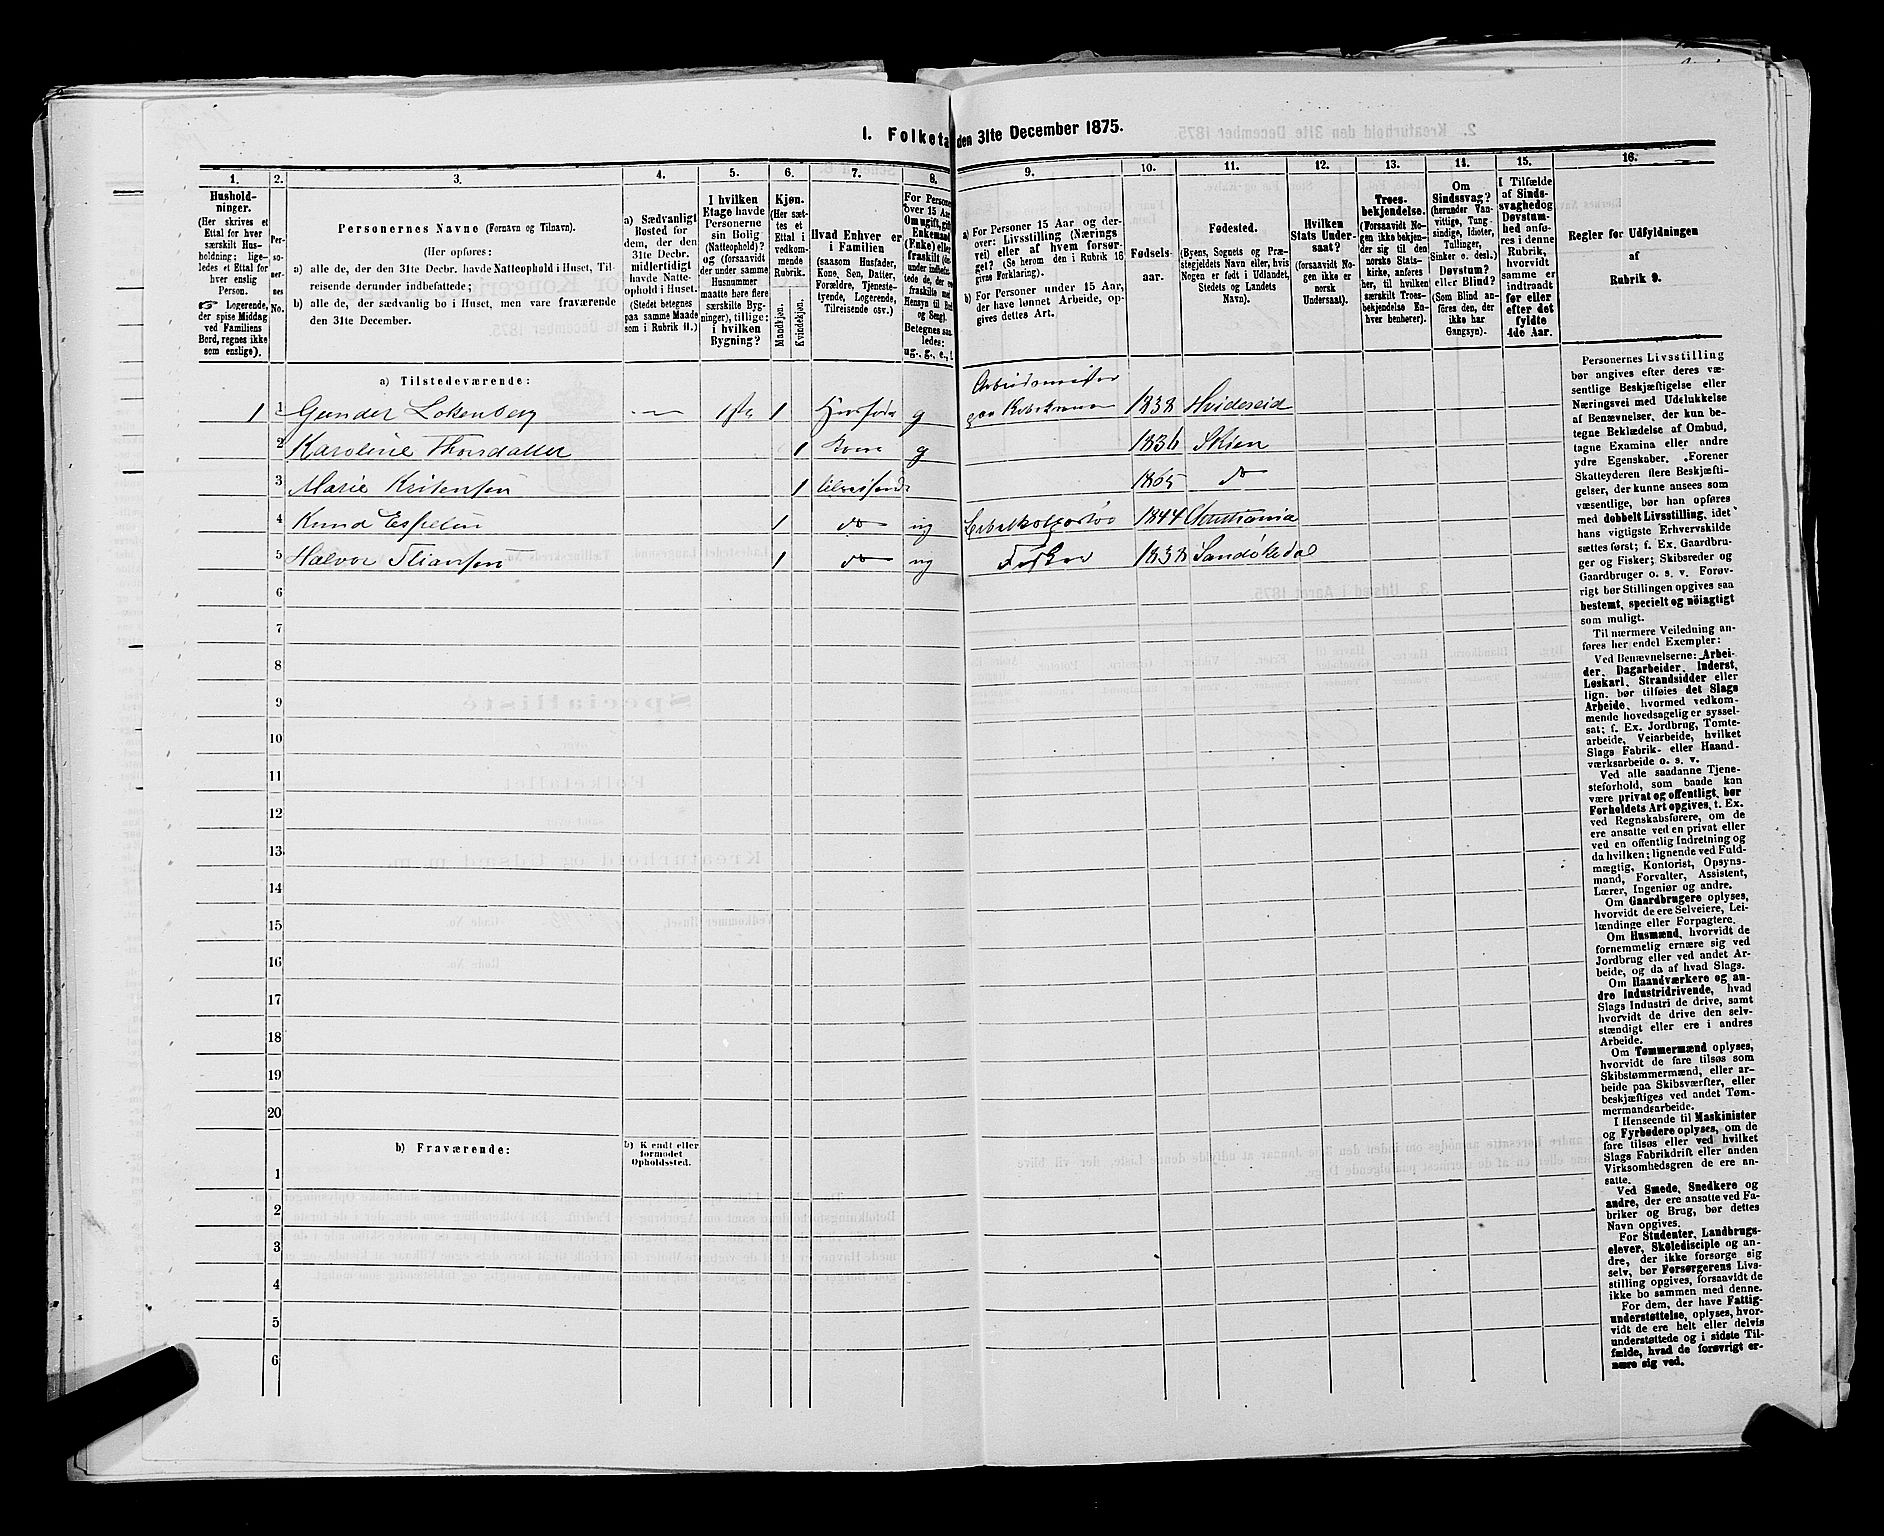 I. Folketa den 31te December 1875.
1. 2. 3. 4. 5. 6. 7. 8. 9. 10. 11. 12. 13. 14. 15. 16.
Hushold-
ninger.
(Her skrives et
Ettal for hver
særskilt Hus-
holdning; lige-
ledes et Ettal for
hver enslig
Person.
☞ Logerende,
der spise Middag
ved Familiens
Bord, regnes ikke
som enslige).
Per-
so-
ner-
nes
No.
Personernes Navne (Fornavn og Tilnavn).
(Her opføres:
a) alle de, der den 31te Decbr. havde Natteophold i Huset, Til-
reisende derunder indbefattede;
b) alle de, der sædvanlig bo i Huset, men vare fraværende
den 31te December.
a) Sædvanligt
Bosted for
dem, der den
31te Decbr.
midlertidigt
havde Natte-
ophold i Huset.
(Stedet betegnes
paa samme Maade
som i Rubrik 11.)
I hvilken
Etage havde
Personerne
sin Bolig
(Natteophold)?
og (forsaavidt
der under samme
Husnummer
maatte høre flere
særskilte Byg-
ninger), tillige:
i hvilken
Bygning?
Kjøn.
(Her sæt-
tes et
Ettal i
vedkom-
mende
Rubrik.
Mandkjøn.
Kvindekjøn.
Hvad Enhver er
i Familien
(saasom Husfader,
Kone, Søn, Datter,
Forældre, Tjeneste-
tyende, Logerende,
Tilreisende osv.)
For Persone
over 15 Aar
Omugift, gift
Enkemand
(Enke) eller
fraskilt (de
under indbefat-
tede de, der ere
fraskilte med
Hensyn til Bord
og Seng).
Betegnes saa-
ledes:
ug., g., e., f.
a) For Personer 15 Aar og der-
over: Livsstilling (Nærings
vei) eller af hvem forsør-
get? (Se herom den i Rubrik 16
givne Forklaring).
b) For Personer under 15 Aar,
der have lønnet Arbeide, op-
gives dettes Art.
Fødsels-
aar.
Fødested.
(Byens, Sognets og Præ-
stegjeldets Navn eller, hvis
Nogen er født i Udlandet,
Stedets og Landets
Navn).
Hvilken
Stats Under-
saat?
(forsaavidt No-
gen ikke er
norsk
Undersaat).
Troes-
bekjendelse.
(Forsaavidt No-
gen ikke bekjen-
der sig til den
norske Stats-
kirke, anføres
her, til hvilken
særskilt Troes-
bekjendelse En-
hver benhører).
Om
Sindssvag?
(herunder Van-
vittige, Tung-
sindige, Idioter,
Tullinger,
Sinker o. desl.)
Døvstum?
eller Blind?
(Som Blind an-
føres den, der
ikke har
Gangsyn).
I Tilfælde
af Sinds-
svaghedog
Døvstum-
hed anfø-
res i denne
Rubrik,
hvorvidt
samme er
indtraadt
før eller
efter det
fyldte
4de Aar.
Regler for Udfyldningen
af
Rubrik 9.
a) Tilstedeværende:
1 1 Gunder Lokenberg 1ste 1 g 1838 Hvideseid
2 Karoline Thorsdatter 1 Kone g 1836 Skien
3 Marie Kristensen 1 1865 do
4 Knud 1 do ug 1844
5 Halvor 1 do ug Fisker 1838 Sandøkedal
6
7
8
9
10
11
12
13
14
15
16
17
18
19
20
b) Fraværende:
b) Kjendt eller
formodet
Opholdssted.
1
2
3
4
5
6
Personernes Livsstilling
bør angives efter deres væ-
sentlige Beskjæftigelse eller
Næringsvei med Udelukkelse
af Benævnelser, der kun be-
tegne Beklædelse af Ombud,
tagne Examina eller andre
ydre Egenskaber. Forener
Skatteyderen flere Beskjæfti-
gelser, der kunne ansees som
væsentlige, bør han opføres
med dobbelt Livsstilling, idet
hans vigtigste Erhvervskilde
sættes først; f. Ex. Gaardbru-
ger og Fisker; Skibsreder og
Gaardbruger o. s. v. Forøv-
rigt bør Stillingen opgives saa
bestemt, specielt og nøiagtigt
som muligt.
Til nærmere Veiledning an-
føres her endel Exempler:
Ved Benævnelserne: Arbei-
der, Dagarbeider, Inderst,
Løskarl, Strandsidder eller
lign. bør tilføies det Slags
Arbeide, hvormed vedkom-
mende hovedsagelig er syssel-
sat; f. Ex. Jordbrug, Tomte-
arbeide, Veiarbeide, hvilket
Slags Fabrik- eller Haand-
værksarbeide o. s. v.
Ved alle saadanne Tjene-
steforhold, som baade kan
være privat og offentligt, bør
Forholdets Art opgives, t. Ex.
ved Regnskabsførere, om de
ere ansatte ved en privat eller
ved en offentlig Indretning og
da hvilken; lignende ved Fuld-
mægtig, Kontorist, Opsyns-
mand, Forvalter, Assistent,
Lærer, Ingeniør og andre.
Om Gaardbrugere oplyses,
hvorvidt de ere Selveiere, Lei-
lændinge eller Forpagtere.
Om Husmænd, hvorvidt de
fornemmelig ernære sig ved
Jordbrug eller ved andet Ar-
beide, og da af hvad Slags.
Om Haandværkere og an-
dre Industridrivende, hvad
Slags Industri de drive, samt
hvorvidt de drive den selv-
stændigt eller ere i andres
Arbeide.
Om Tømmermænd oplyses,
hvorvidt de fare tilsøs som
Skibstømmermænd, eller ar-
beide paa Skibsværfter, eller
beskjæftiges ved andet Tøm-
mermandsarbeide.
I Henseende til Maskinister
og Fyrbødere oplyses, om de
fare tilsøs eller ved hvilket
Slags Fabrikdrift eller anden
Virksomhedsgren de ere an-
satte.
Ved Smede, Snedkere og
andre, der ere ansatte ved Fa-
briker og Brug, bør dettes
Navn opgives.
For Studenter, Landbrugs-
elever, Skoledisciple og an-
dre, der ikke forsørge sig
selv, bør Forsørgerens Livs-
stilling opgives, forsaavidt de
ikke bo sammen med denne.
For dem, der have Fattig-
understøttelse, oplyses, hvor-
vidt de ere helt eller delvis
understøttede og i sidste Til-
fælde, hvad de forøvrigt er-
nære sig ved.